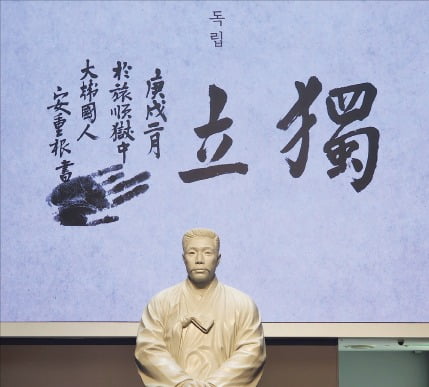 독립
獨立
庚戌二月
於旅順獄中
大韓國人
安重根書